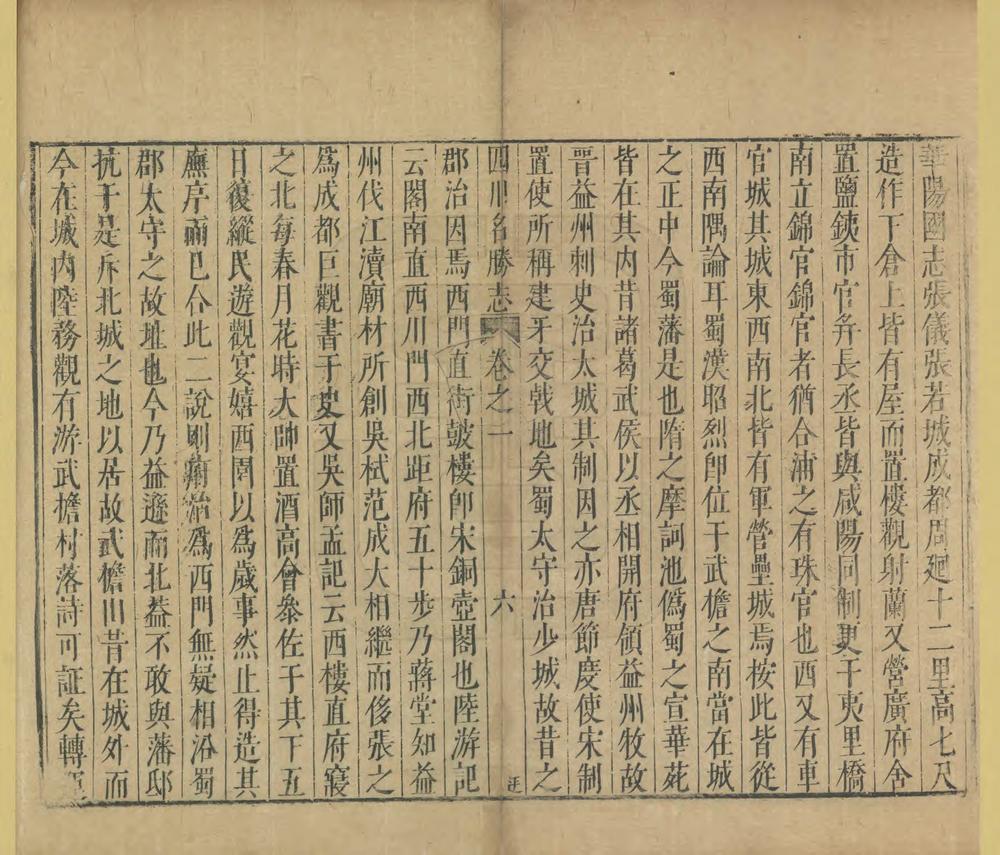 華陽國志張儀張若城成都周廻十二里高七尺
造作下倉上皆有屋而置樓觀射蘭又營廣府舍
置鹽鐵市官并長丞皆與咸陽同制更于夷里橋
南立錦官錦官者猶合浦之有珠官也西又有車
官城其城東西南北皆有軍營壘城焉按此皆從
西南隅論耳蜀漢昭烈卽位于武檐之南當在城
之正中今蜀藩是也隋之摩訶池僞蜀之宣華苑
皆在其内昔諸葛武侯以丞相開府領益州牧故
晋益州刺史治太城其制因之亦唐節度使宋制
置使所稱建牙交戟地矣蜀太守治少城故昔之
四川名勝志 卷之二 六
郡治因焉西門直街皷樓卽宋銅壺閣也陸游記
云閣南直西川門西北距府五十步乃蔣堂知益
州伐江瀆廟材所創吳栻范成大相繼而侈張之
爲成都巨觀書于史又吳師孟記云西樓直府寢
之北每春月花時大帥置酒高會叅佐于其下五
日復縱民遊觀宴嬉西園以爲歲事然止得造其
廡序而已仝此二說則府治爲西門無疑相沿蜀
郡太守之故址也今乃益遜而北葢不敢與藩邸
抗于是斥北城之地以居故武檐山昔在城外而
今在城内陸務觀有游武擔村落詩可証矣轉